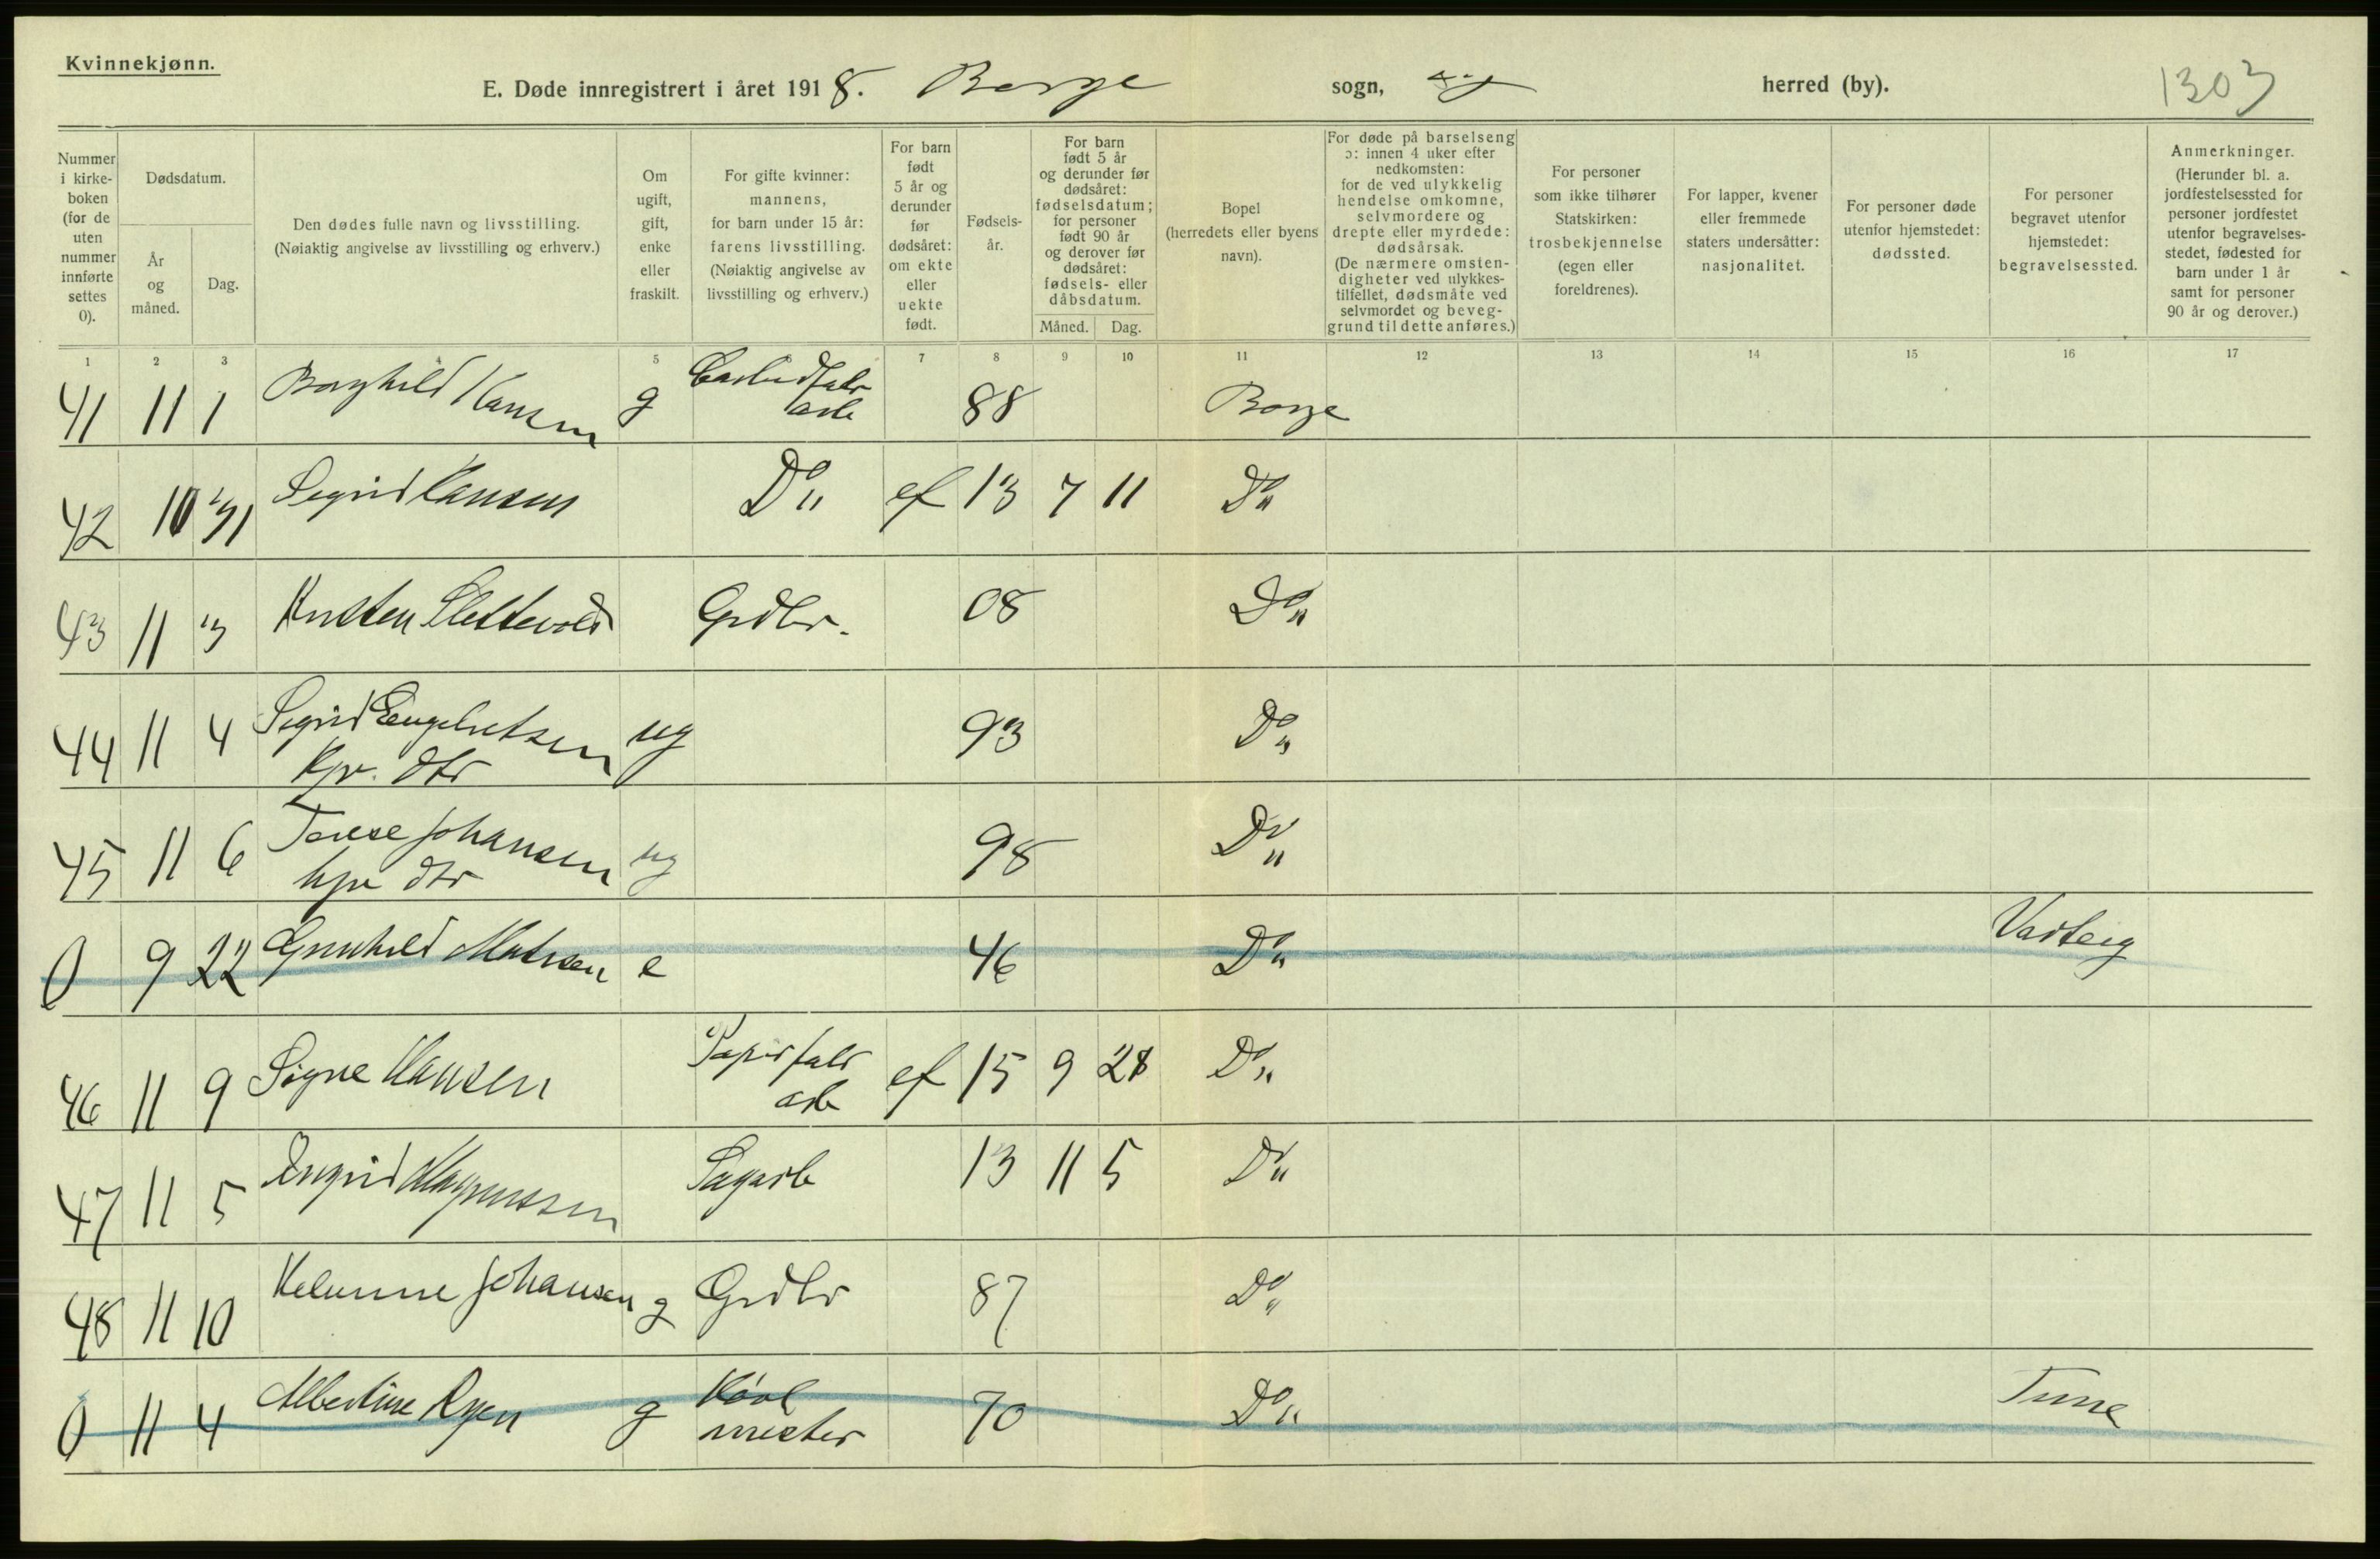 Kvinnekjønn.
E. Døde innregistrert i året 1918. Borge sogn, herred (by). 1303
Nummer i kirke-boken (for de uten nummer innførte settes 0).
Dødsdatum.
År og måned.
Dag.
Den dødes fulle navn og livsstilling.
(Nøiaktig angivelse av livsstilling og erhverv.)
Om ugift, gift, enke eller fraskilt.
For gifte kvinner: mannens, for barn under 15 år: farens livsstilling.
(Nøiaktig angivelse av livsstilling og erhverv.)
For barn født 5 år og derunder før dødsåret: om ekte eller uekte født.
Fødsels-år.
For barn født 5 år og derunder før dødsåret: fødselsdatum; for personer født 90 år og derover før dødsåret: fødsels- eller dåbsdatum.
Måned. Dag.
Bopel (herredets eller byens navn).
For døde på barselseng ɔ: innen 4 uker efter nedkomsten: for de ved ulykkelig hendelse omkomne, selvmordere og drepte eller myrdede: dødsårsak.
(De nærmere omsten-digheter ved ulykkes-tilfellet, dødsmåte ved selvmordet og beveg-grund til dette anføres.)
For personer som ikke tilhører Statskirken: trosbekjennelse (egen eller foreldrenes).
For lapper, kvener eller fremmede staters undersåtter: nasjonalitet.
For personer døde utenfor hjemstedet: dødssted.
For personer begravet utenfor hjemstedet: begravelsessted.
Anmerkninger.
(Herunder bl. a. jordfestelsessted for personer jordfestet utenfor begravelses-stedet, fødested for barn under 1 år samt for personer 90 år og derover.)
1 2 3 4 5 6 7 8 9 10 11 12 13 14 15 16 17
41 11 1 Borghild Hansen g Carbidfabr arb 88 Borge
42 10 31 Sigrid Hansen Do" ef 13 7 11 Do"
43 11 3 Kirsten Slettevold Grdbr. 08 Do"
44 11 4 Sigrid Engebretsen ug 93 Do"
Kpr. dtr
45 11 6 Johansen ug 98 Do"
dtr
0 9 22 Gunhild Madsen e 46 Do" Varteig
46 11 9 Signe Hansen Papirfabr arb ef 15 9 28 Do"
47 11 5 Ingrid Magnussen Sagarb 13 11 5 Do"
48 11 10 Johansen g Grdbr 87 Do"
0 11 4 Albertine Ryen g mester 70 Do" Tune